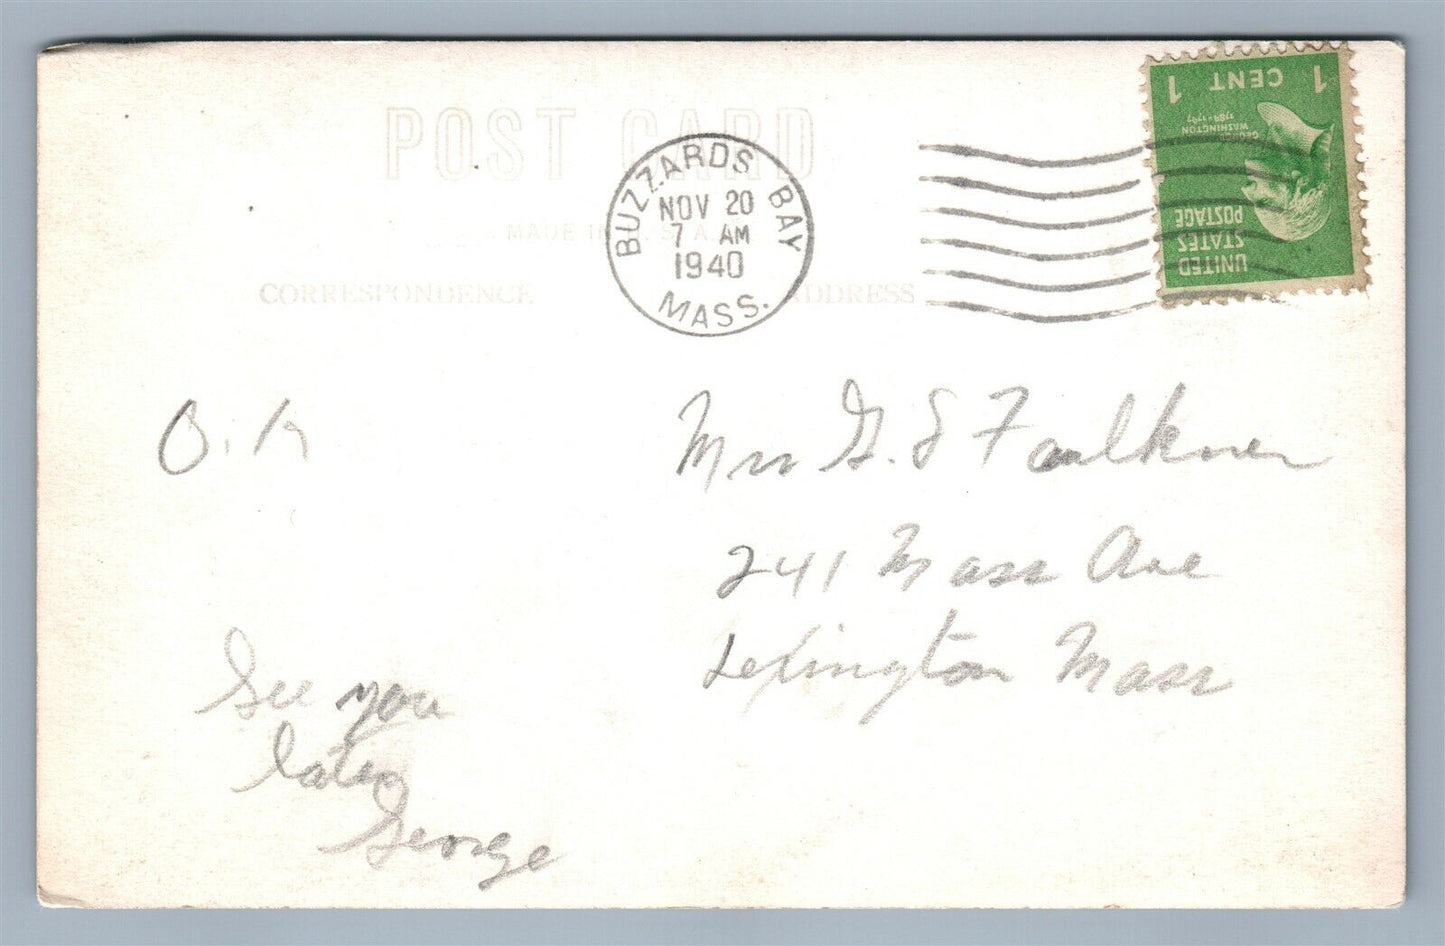 POST CARD
MADE IN U.S.A.
CORRESPONDENCE
ADDRESS
BUZZARDS BAY
NOV 20
7 AM
1940
MASS.
1 CENT 1
GEORGE
WASHINGTON
1789-1797
UNITED
STATES
POSTAGE
O.K
Mrs G. S Faulkner
241 Mass Ave
Lexington Mass
See you
later
George